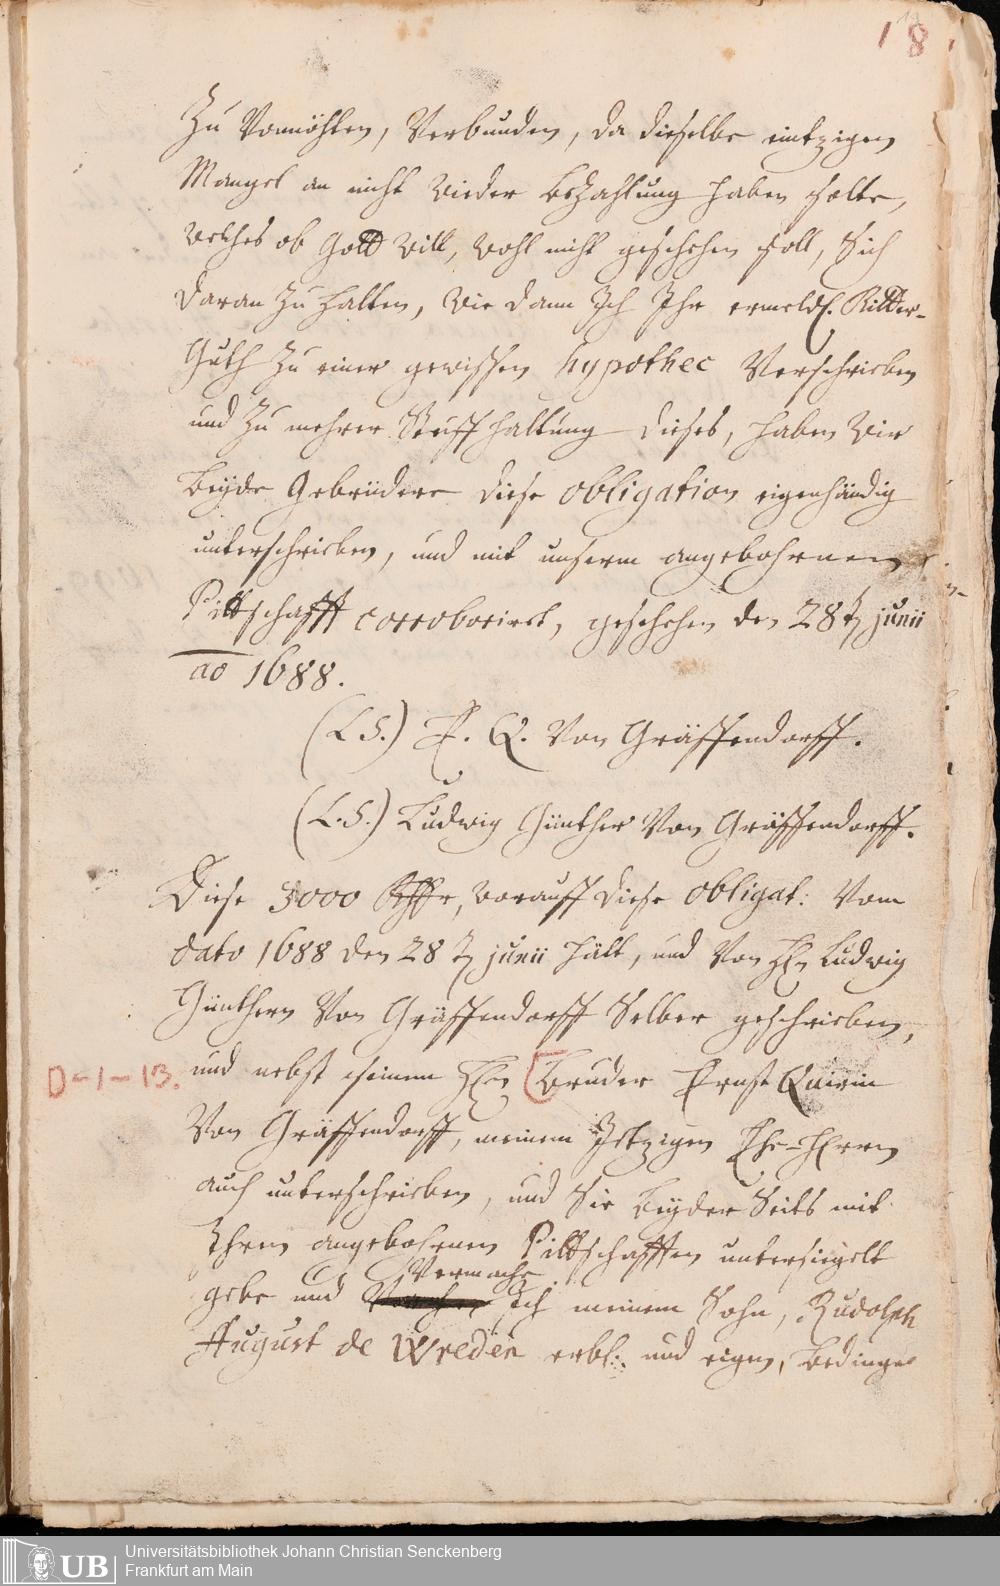 18
Zu Vonnöhten, Verbunden, da dieselbe eintzigen
Mangel an nicht wieder bezahlung haben solte,
welches ob Gott will, wohl nicht geschehen soll, Sich
daran Zu halten, wie dann Ich Ihr ermeldt. Ritter-
Guth Zu einer gewissen hypothec Verschrieben
und Zu mehrer Steiffhaltung dieses, haben Wir
beyde Gebrüdere diese obligation eigenhändig
unterschrieben, und mit unserm angebohrnen
Pittschafft corroborirt, geschehen den 28 t junii
ao 1688.
(L S.) E. Q. Von Gräffendorff.
(L.S.) Ludwig Günther Von Gräffendorff.
Diese 3000 Rthlr, worauff diese obligat: Vom
dato 1688 den 28 t junii hält, und Von Hn Ludwig
Günthern Von Gräffendorff Selber geschrieben,
D-1-13.
und nebst seinem Hrn Bruder Ernst Quirin
Von Gräffendorff, meinem Jetzigen Ehe-Herrn
auch unterschrieben, und Sie beyder Seits mit
Ihren angebohrnen Pittschafften untersiegelt
Vermache
gebe und Ich meinem Sohn, Rudolph
August de Wreden erbl: und eigen, bedinge
UB
Universitätsbibliothek Johann Christian Senckenberg
Frankfurt am Main